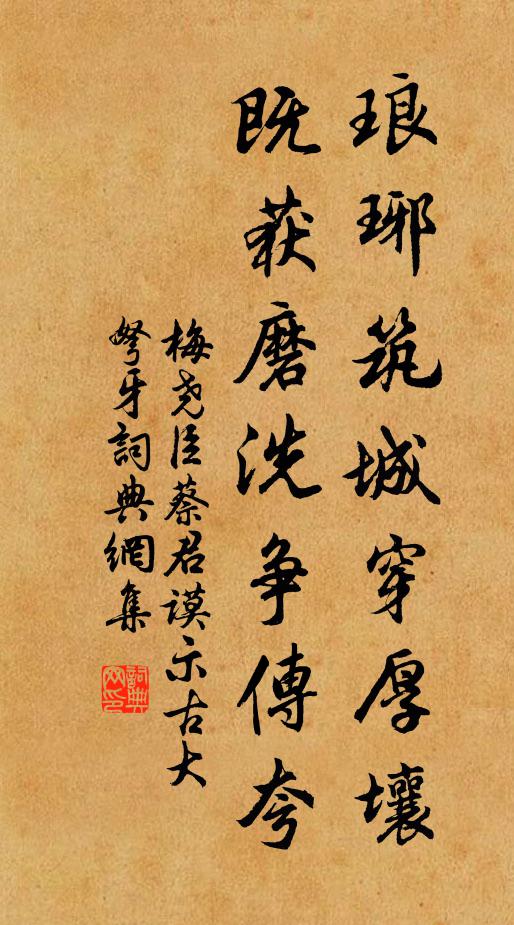 琅琊筑城穿厚壤
既获磨洗争傳夸
梅尧臣蔡君谟示古大
弩牙詞典網集
詞典网印